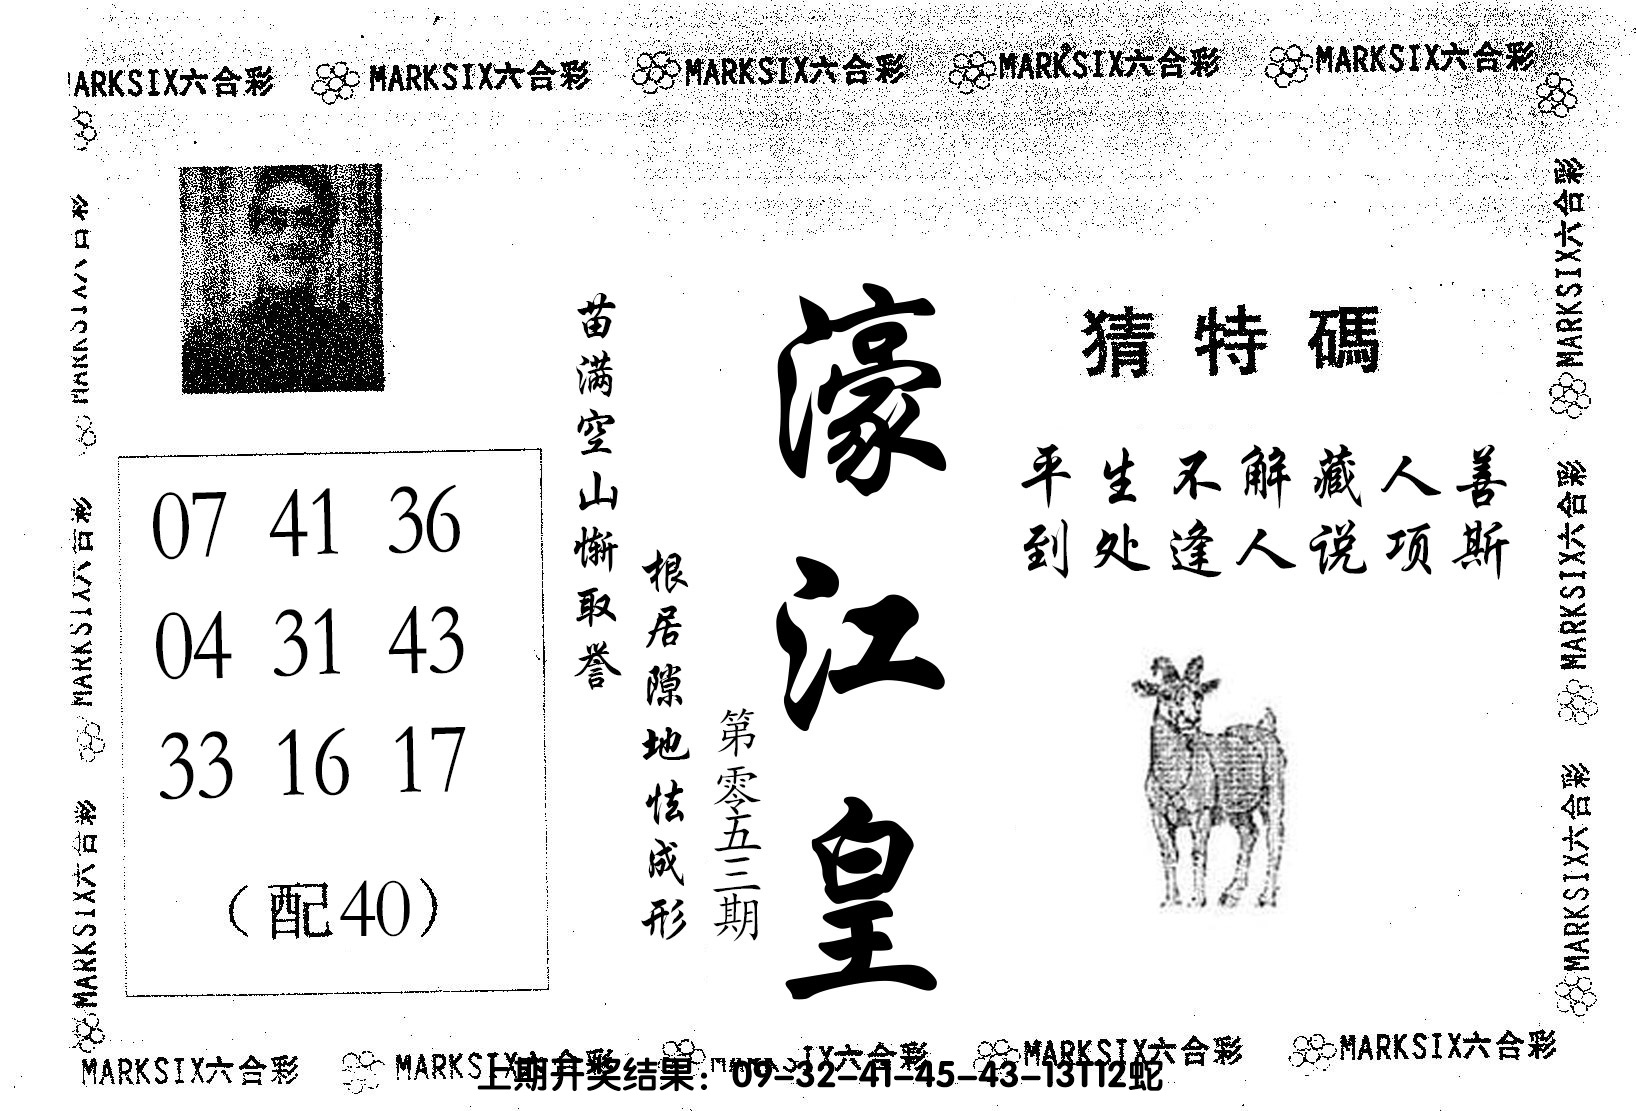 MARKSIX六合彩 MARKSIX六合彩 MARKSIX六合彩 MARKSIX六合彩
猜特碼
平生不解藏人善
到处逢人说项斯
濠江皇
第零五三期
苗满空山惭取誉
根居隙地怯成形
07 41 36
04 31 43
33 16 17
(配40)
MARKSIX六合彩
MARKSIX六合彩
MARKSIX六合彩
MARKSIX六合彩
MARKSIX六合彩 MARKSIX六合彩 MARKSIX六合彩 MARKSIX六合彩
上期开奖结果：09-32-41-45-43-13T12蛇